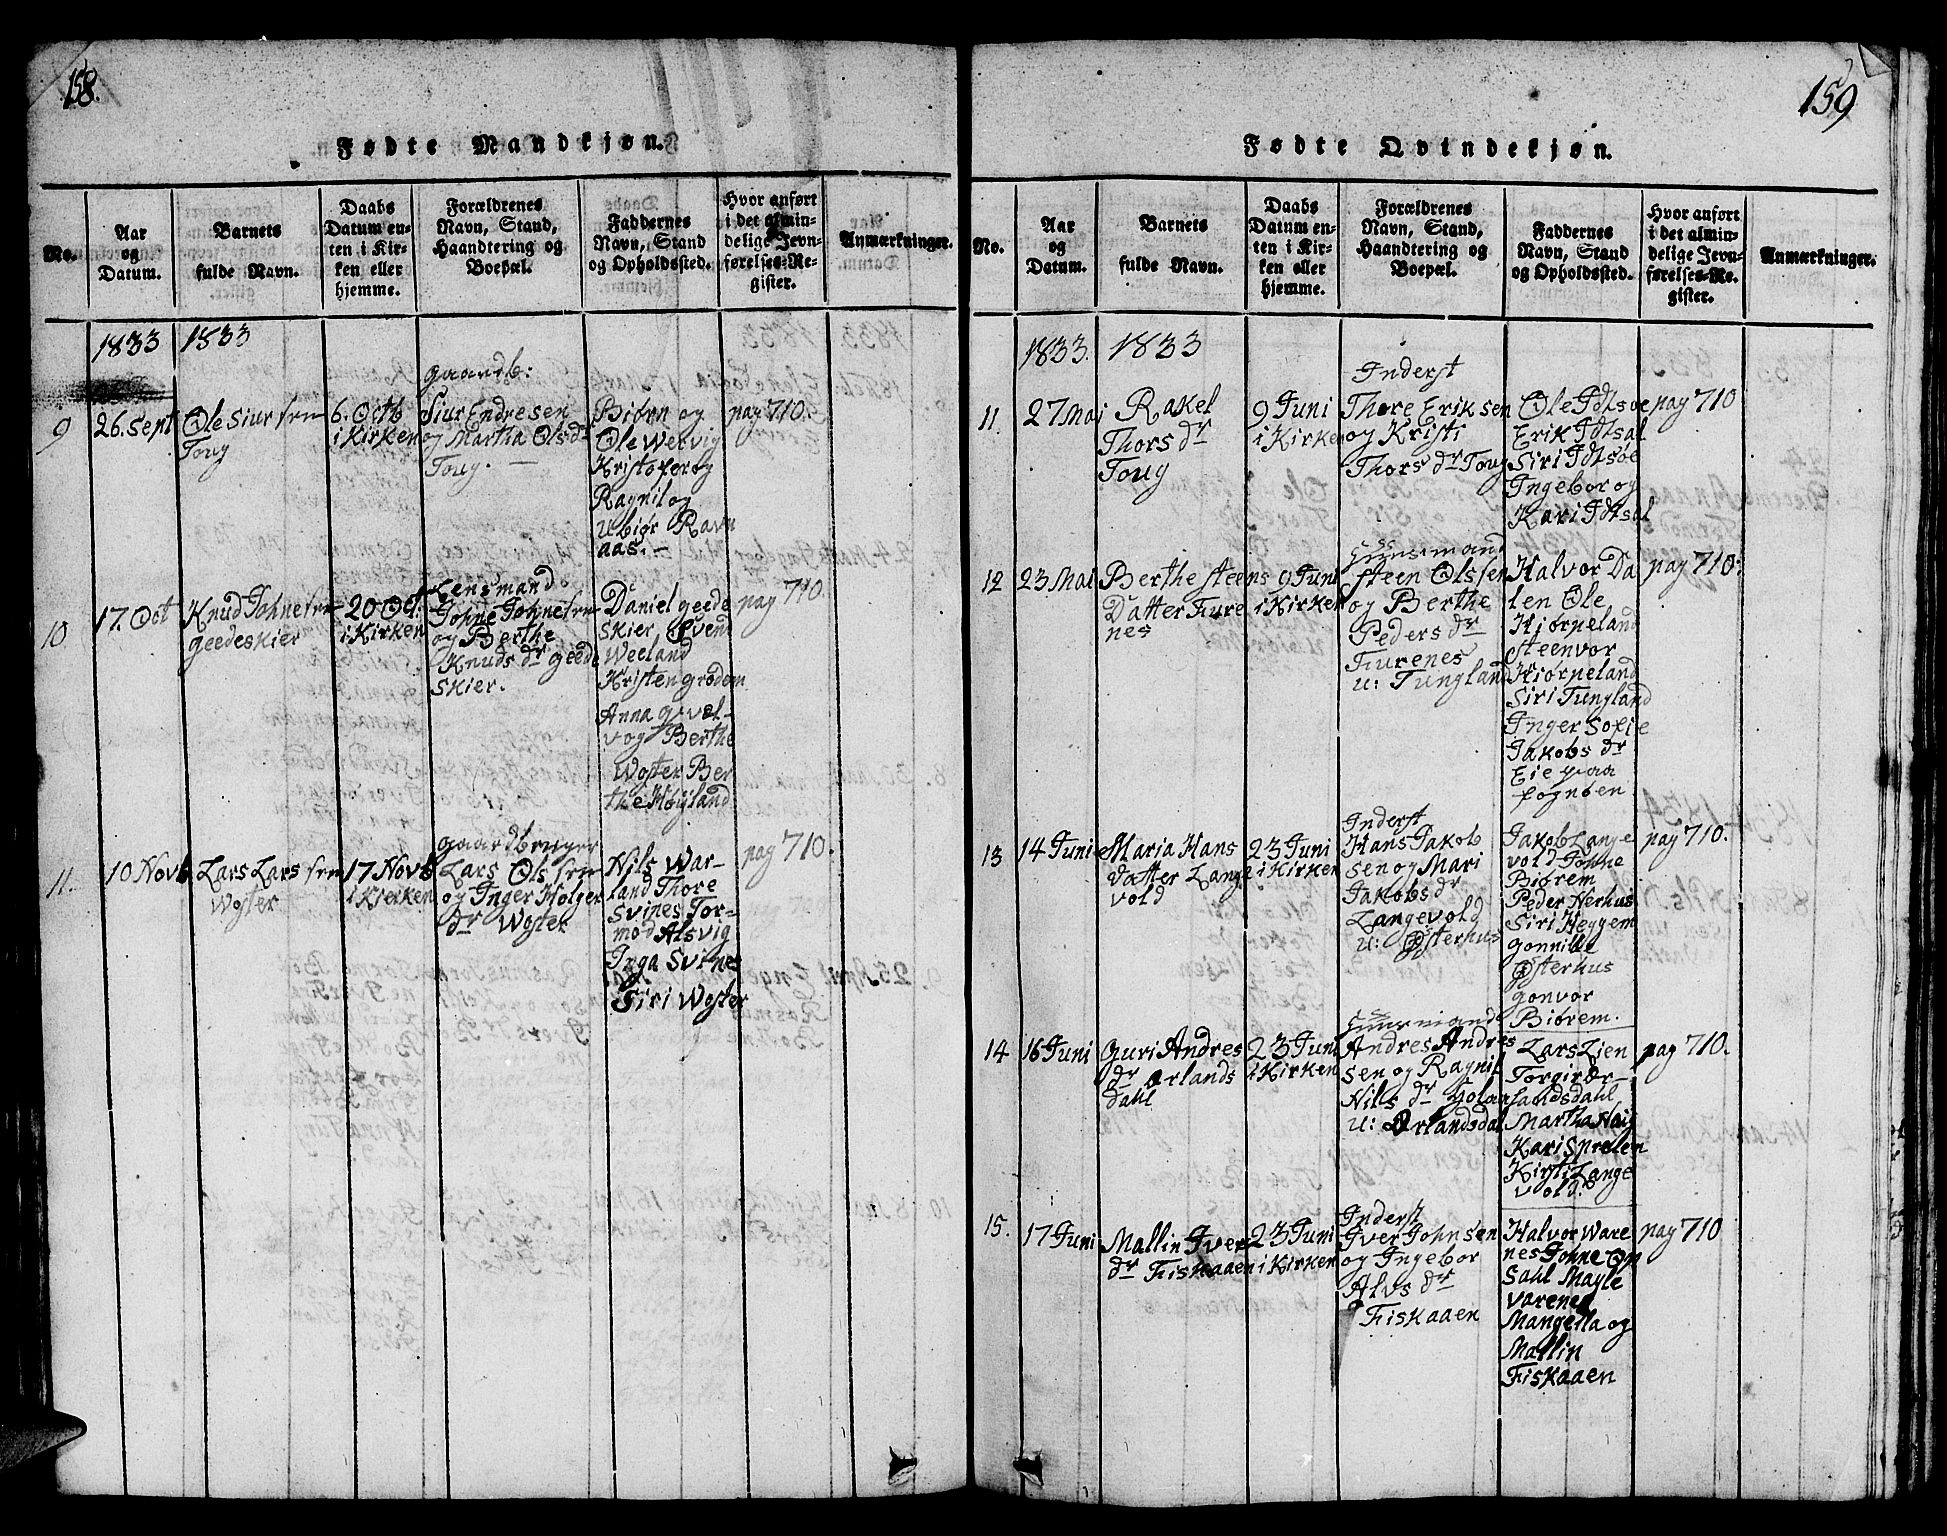 158.
Fødte Mandkjøn.
No.
Aar
og
Datum.
Barnets
fulde Navn.
Daabs
Datum en-
ten i Kir-
ken eller
hjemme.
Forældrenes
Navn, Stand,
Haandtering og
Boepæl.
Faddernes
Navn, Stand
og Opholdssted.
Hvor anført
i det almin-
delige Jevn-
førelses-Re-
gister.
Anmærkninger.
1833
1833
9
26. Sept
Ole Siursen
Toug
6. Octb
i Kirken
Gaardb:
Siur Endresen
og Martha Olsdr
Toug. —
Biørn og
Ole Wesvig
Kristofer og
Ragnil og
Ubiør Ravn
aas. —
pag 710.
10
17. Oct
Knud Johnesen
Geedeskier
20 Oct.
i Kirken
Lensmand
Johne Johnesen
og Berthe
Knuds dr Geede
skier.
Daniel Geede
skier Svend
Weeland
Kristen Grødem
Anna Qvæl-
v og Berthe
Woster Ber
the Høyland
pag 710.
11.
10 Novb
Lars Larssen
Woster
17 Novb
i Kierken
Gaardbruger
Lars Olssen
og Inger Holger
dr Woster
Nils War-
land Thore
Svines Tor-
mod Alsvig
Inga Svines
Siri Woster
pag 710.
159
Fødte Qvindekjøn.
No.
Aar
og
Datum.
Barnets
fulde Navn.
Daabs
Datum en-
ten i Kir-
ken eller
hjemme.
Forældrenes
Navn, Stand,
Haandtering og
Boepæl.
Faddernes
Navn, Stand
og Opholdssted.
Hvor anført
i det almin-
delige Jevn-
førelses-Re-
gister.
Anmærkninger.
1833.
1833
11.
27 Mai
Rakel
Thors dr
Toug
9 Juni
i Kirken
Inderst
Thore Eriksen
og Kristi
Thors dr Toug
Ole Idtsøe
Erik Idtsal
Siri Idtsøe
Ingebor og
Kari Idtsal
pag 710
12
23 Mai
Berthe Steens
Datter Fure
nes
9 Juni
i Kirken
Huusmand
Steen Olssen
og Berthe
Peders dr
Furenes
u: Tungland
Halvor Da
len Ole
Hjørpeland
Steenvor
Hiørpeland
Siri Tungland
Inger Sofie
Jakobs dr
Eie paa
Fognøen
pag 710.
13
14 Juni
Maria Hans
Datter Lange
vold
23 Juni
i Kirken
Inderst
Hans Jakob
sen og Mari
Jakobs dr
Langevold
u: Østerhus
Jakob Lange
vold Johne
Biørem
Peder Nerhus
Siri Heggem
Gonnille
Østerhus
Gonvor
Biørem.
pag 710.
14
16 Juni
Guri Andres
dr Ørlands
dahl
23 Juni
i Kirken
Huusmand
Andres Andres
sen og Ragnil
Nils dr
u: Ørlandsdal
Lars Lien
Torgir Ør-
landsdahl
Martha Haig
Kari
Kirsti Lange
vold.
pag 710.
15.
17 Juni
Mallin Iver
dr Fiskaaen
23 Juni
i Kirken
Inderst
Iver Johnsen
og Ingebor
Alvs dr
Fiskaaen
Halvor Ware
nes Johne Op
Sahl Mayle
Varenes
Mangella og
Mallin
Fiskaaen
pag 710